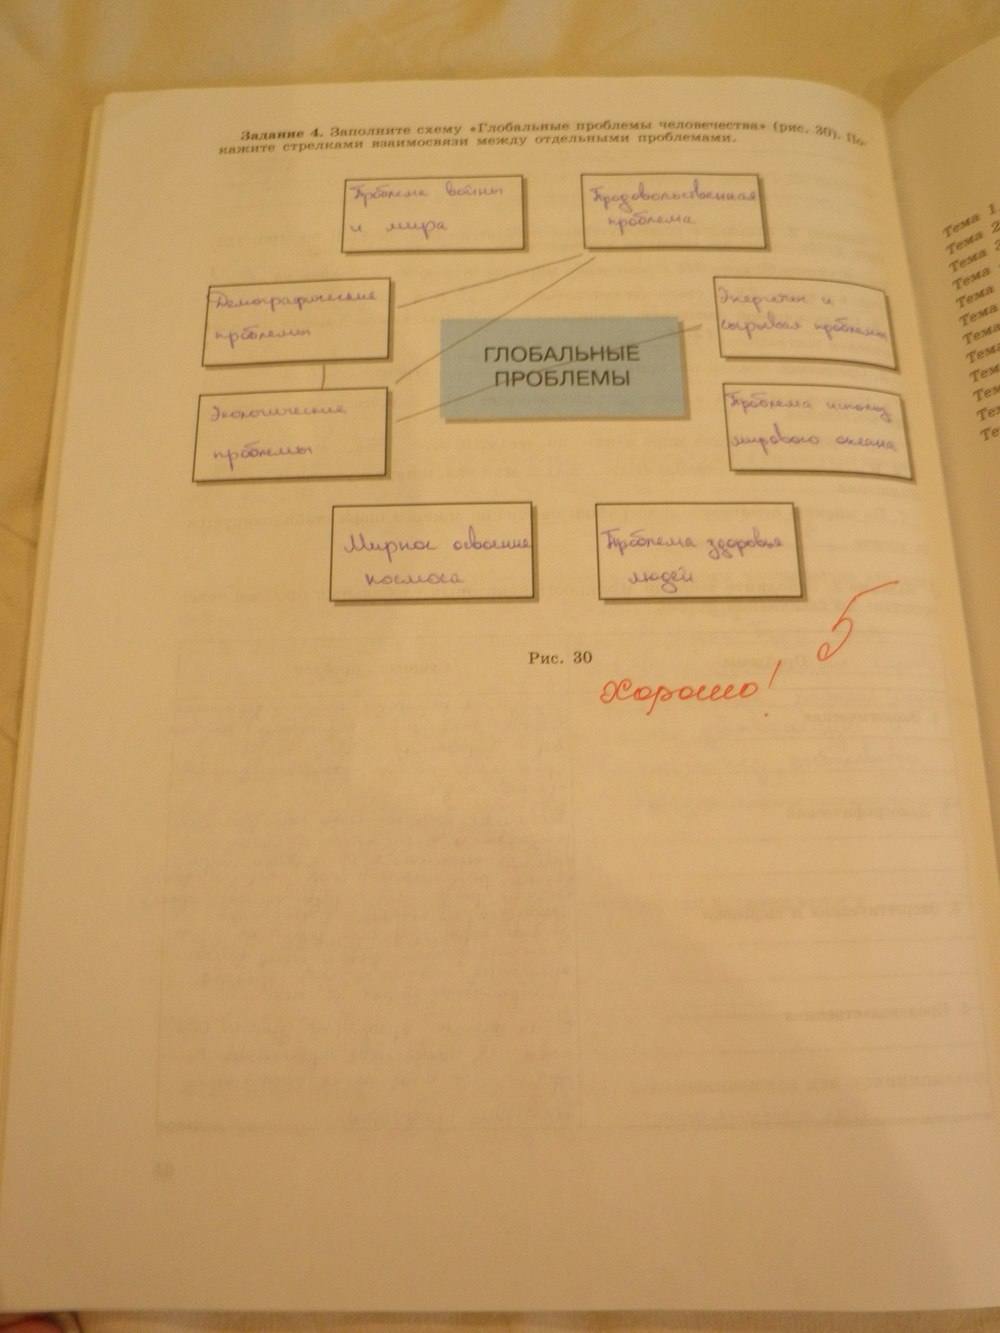 Задание 4. Заполните схему «Глобальные проблемы человечества» (рис. 30). По-
кажите стрелками взаимосвязи между отдельными проблемами.
Проблема войны
и мира
Продовольственная
проблема
Демографические
проблемы
Энергетич и
сырьевая проблемы
ГЛОБАЛЬНЫЕ
ПРОБЛЕМЫ
Экологические
проблемы
Проблема использ
мирового океана
Мирное освоение
космоса
Проблема здоровья
людей
5
Рис. 30
Хорошо!
Тема 1
Тема 2
Тема
Тема
Тема
Тема
Тема
Тема
Тема
Тема
Тем
Те